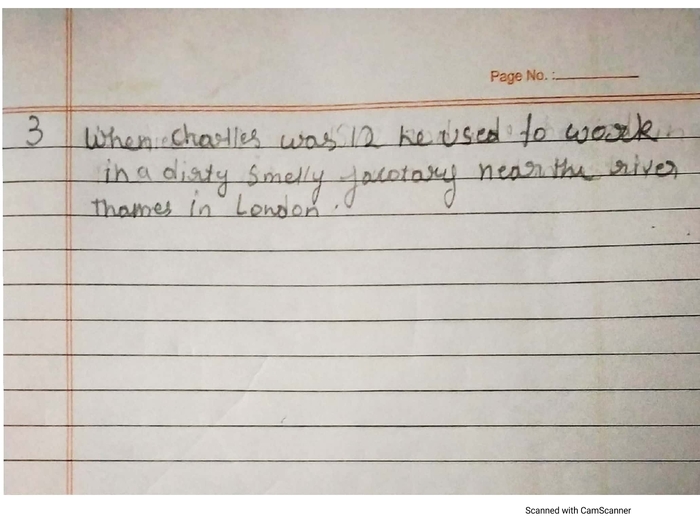 Page No. :
3 When charlles was 12 he used to work
in a dirty smelly facotary near the river
Thames in London .
Scanned with CamScanner